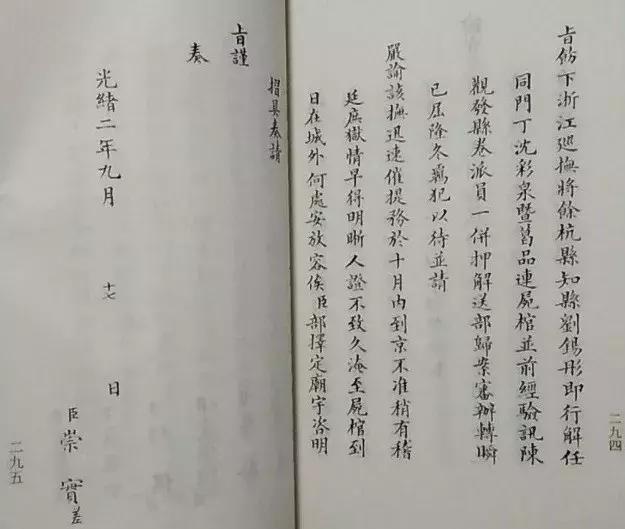 旨飭下浙江巡撫將餘杭縣知縣劉錫彤即行解任
同門丁沈彩泉暨葛品連屍棺並前經驗訊陳
觀發縣卷派員一併押解送部歸案審辦轉瞬
已屆隆冬羈犯以待並請
嚴諭該撫迅速催提務於十月內到京不准稍有稽
延庶獄情早得明晰人證不致久淹至屍棺到
日在城外何處安放容俟臣部擇定廟宇咨明
二九四
摺具奏請
旨謹
奏
光緒二年九月 十七 日
臣 崇實 差
二九五